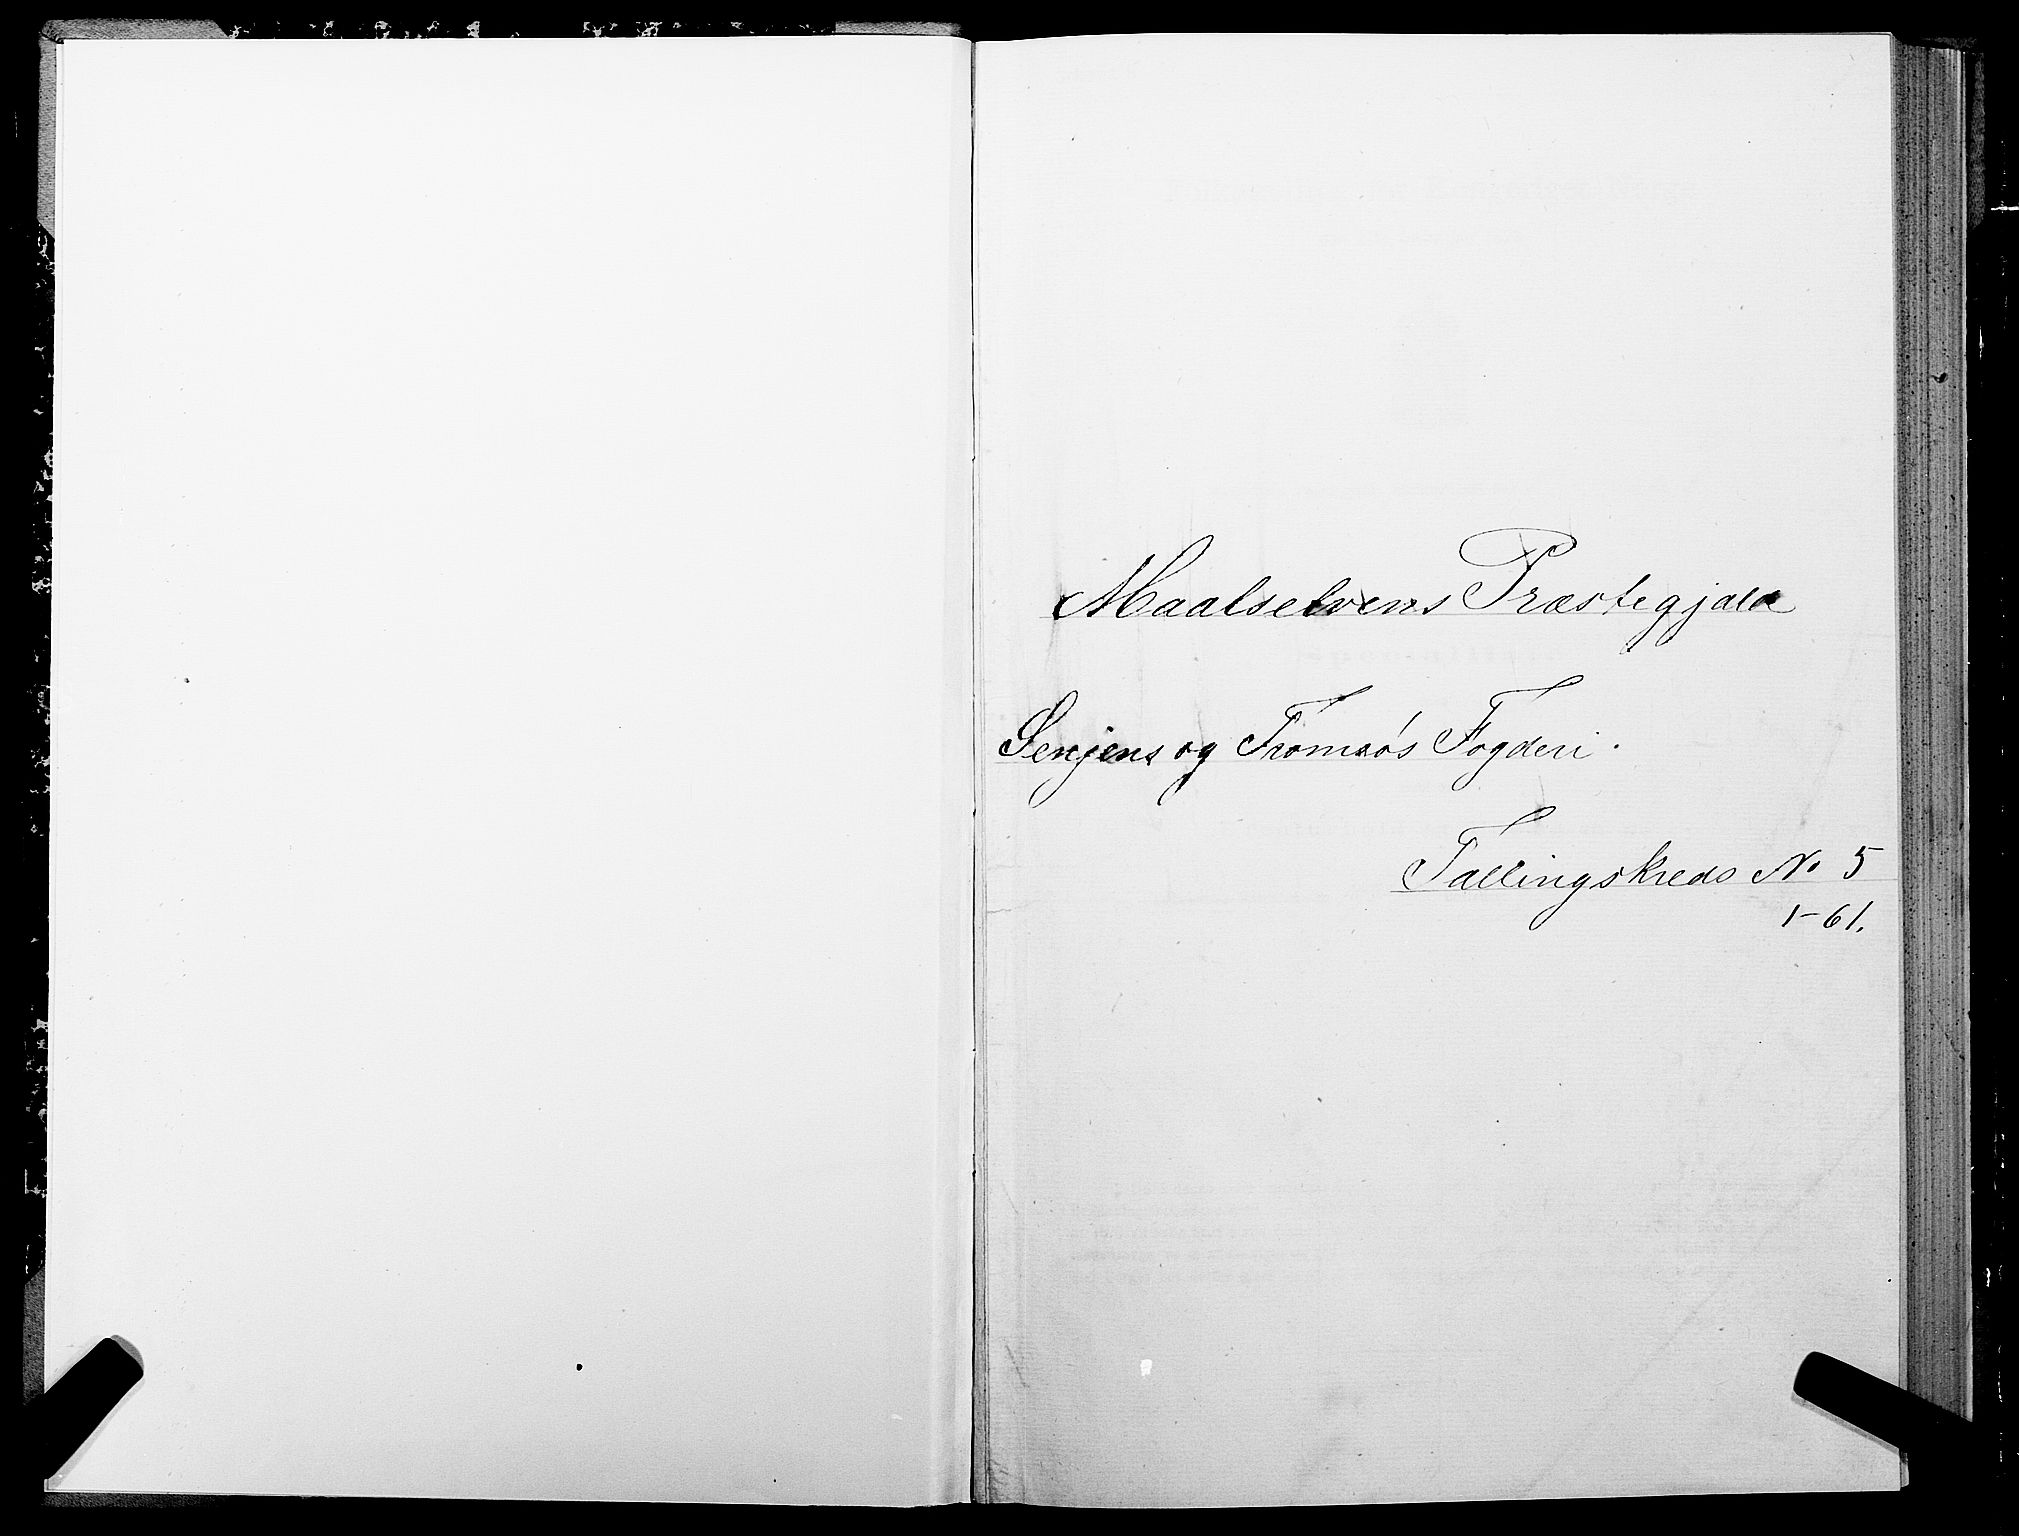 Maalselvens Præstegjeld
Senjens og Tromsøs Fogderi.
Tællingskreds No 5
1-61.